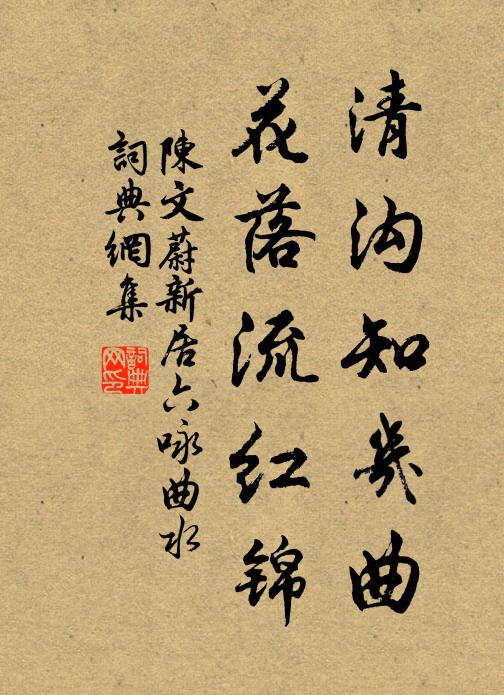 清沟知几曲
花落流红锦
陳文蔚新居六咏曲水
詞典網集
詞典网印